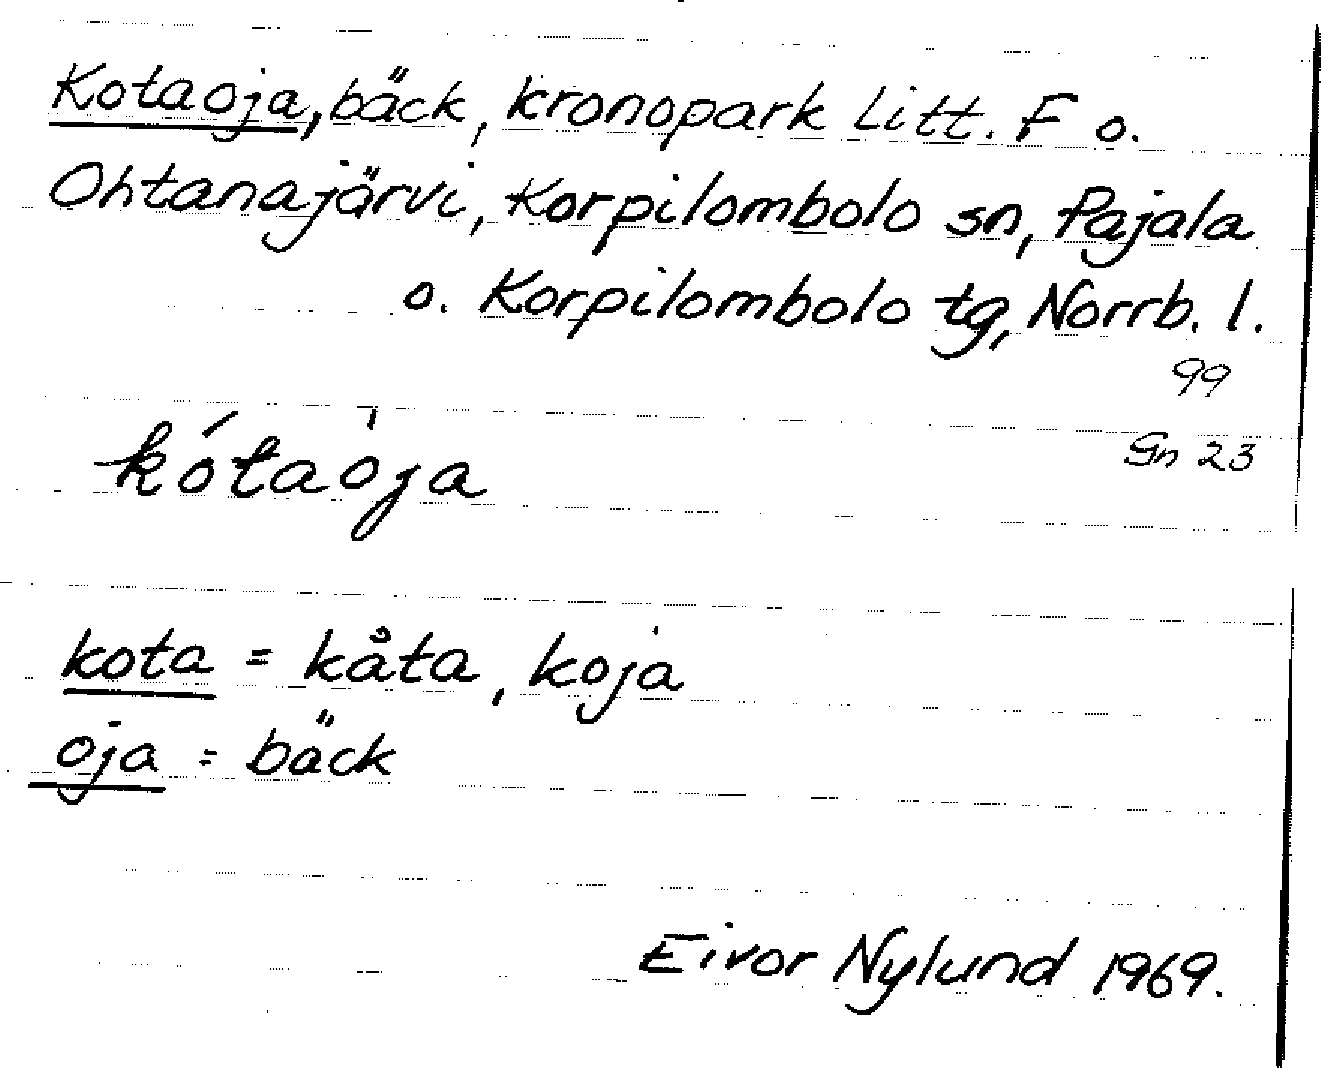 Kotaoja, bäck, kronopark Litt. F o.
Ohtanajärvi, Korpilombolo sn, Pajala
o. Korpilombolo tg, Norrb. l.
99
Gn 23
kótaò̍ja
kota = kåta, koja
oja = bäck
Eivor Nylund 1969.